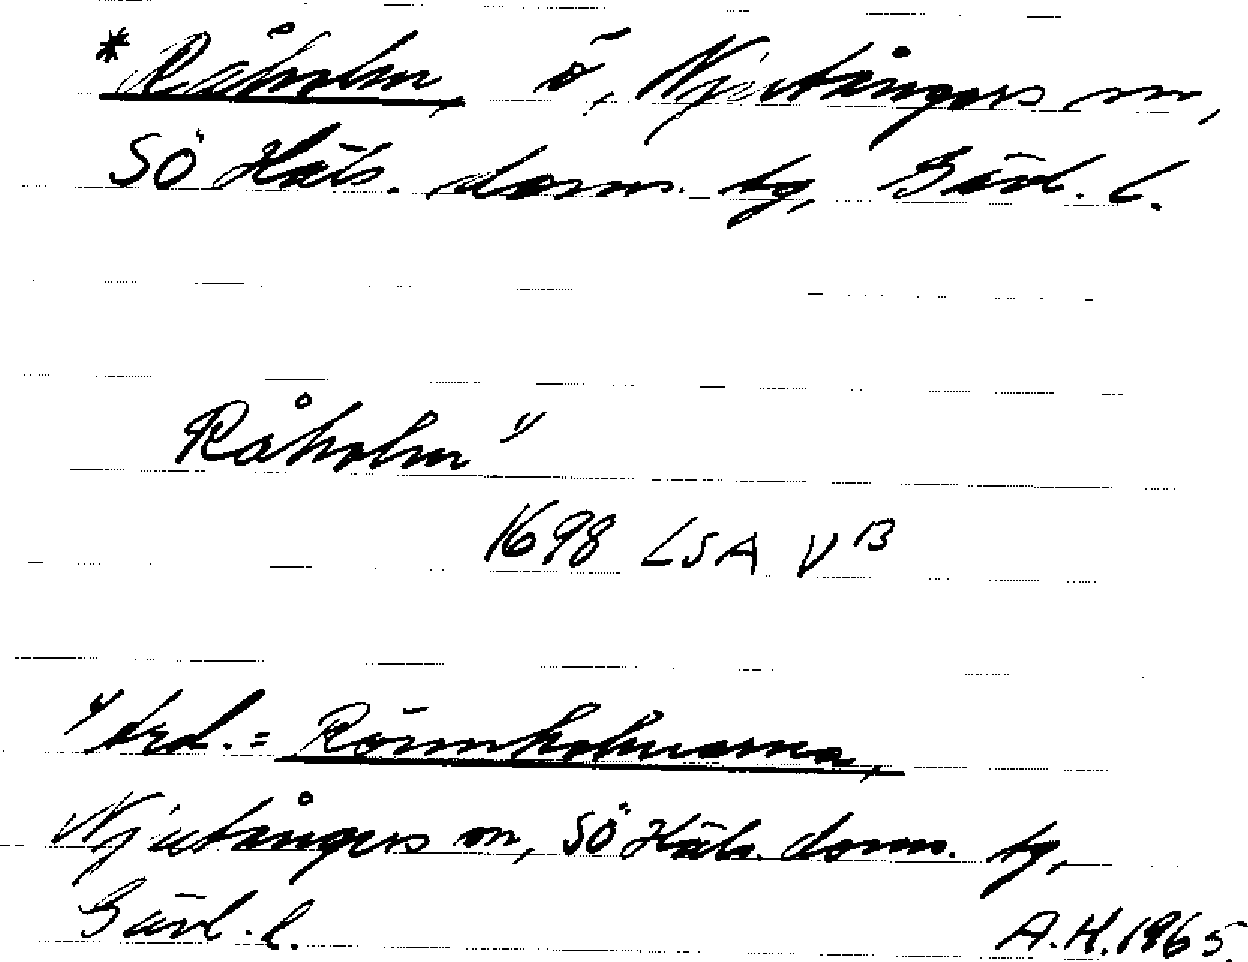 *Råholm, ö, Njutångers sn,
SÖ Häls. doms. tg, Gävl. l.
Råholm ¹⁾
1698 LSA V B
¹⁾ trol. = Rönnholmarna,
Njutångers sn, SÖ Häls. doms. tg,
Gävl. l.
A.H. 1965.